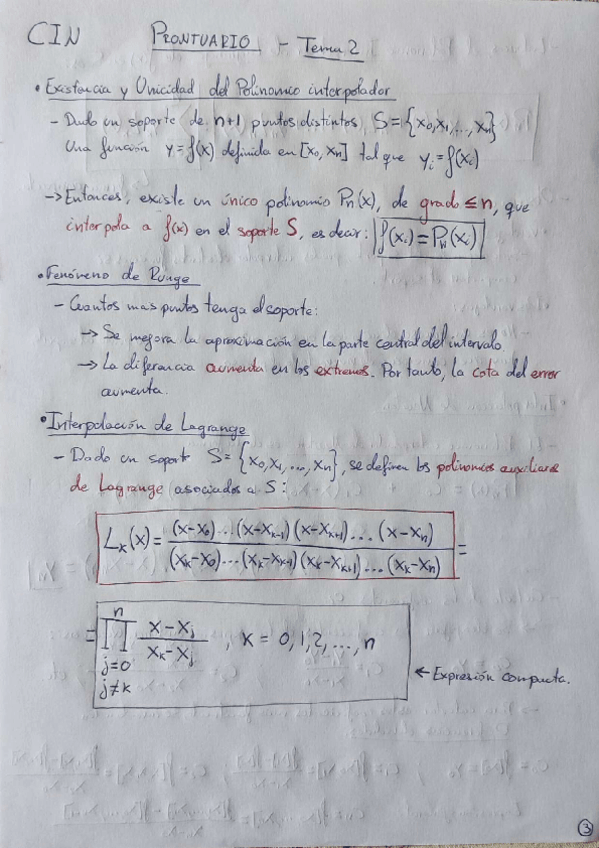 CIN PRONTUARIO - Tema 2
• Existencia y Unicidad del Polinomio interpolador
- Dado un soporte de n+1 puntos distintos, S={x₀,x₁,...,xₙ}
Una función y=f(x) definida en [x₀,xₙ] tal que yᵢ=f(xᵢ)
-> Entonces, existe un único polinomio Pₙ(x), de grado ≤ n, que
interpola a f(x) en el soporte S, es decir: f(xᵢ)=Pₙ(xᵢ)
• Fenómeno de Runge
- Cuantos mas puntos tenga el soporte:
-> Se mejora la aproximación en la parte central del intervalo
-> La diferencia aumenta en los extremos. Por tanto, la cota del error
aumenta.
• Interpolación de Lagrange
- Dado un soport S={x₀,x₁,...,xₙ}, se definen los polinomios auxiliares
de Lagrange asociados a S:
Lₖ(x)= (x-x₀)...(x-xₖ₋₁)(x-xₖ₊₁)...(x-xₙ) / (xₖ-x₀)...(xₖ-xₖ₋₁)(xₖ-xₖ₊₁)...(xₖ-xₙ) =
= ∏ⁿ j=0 j≠k (x-xⱼ)/(xₖ-xⱼ) , k=0,1,2,...,n
← Expresión compacta.
3